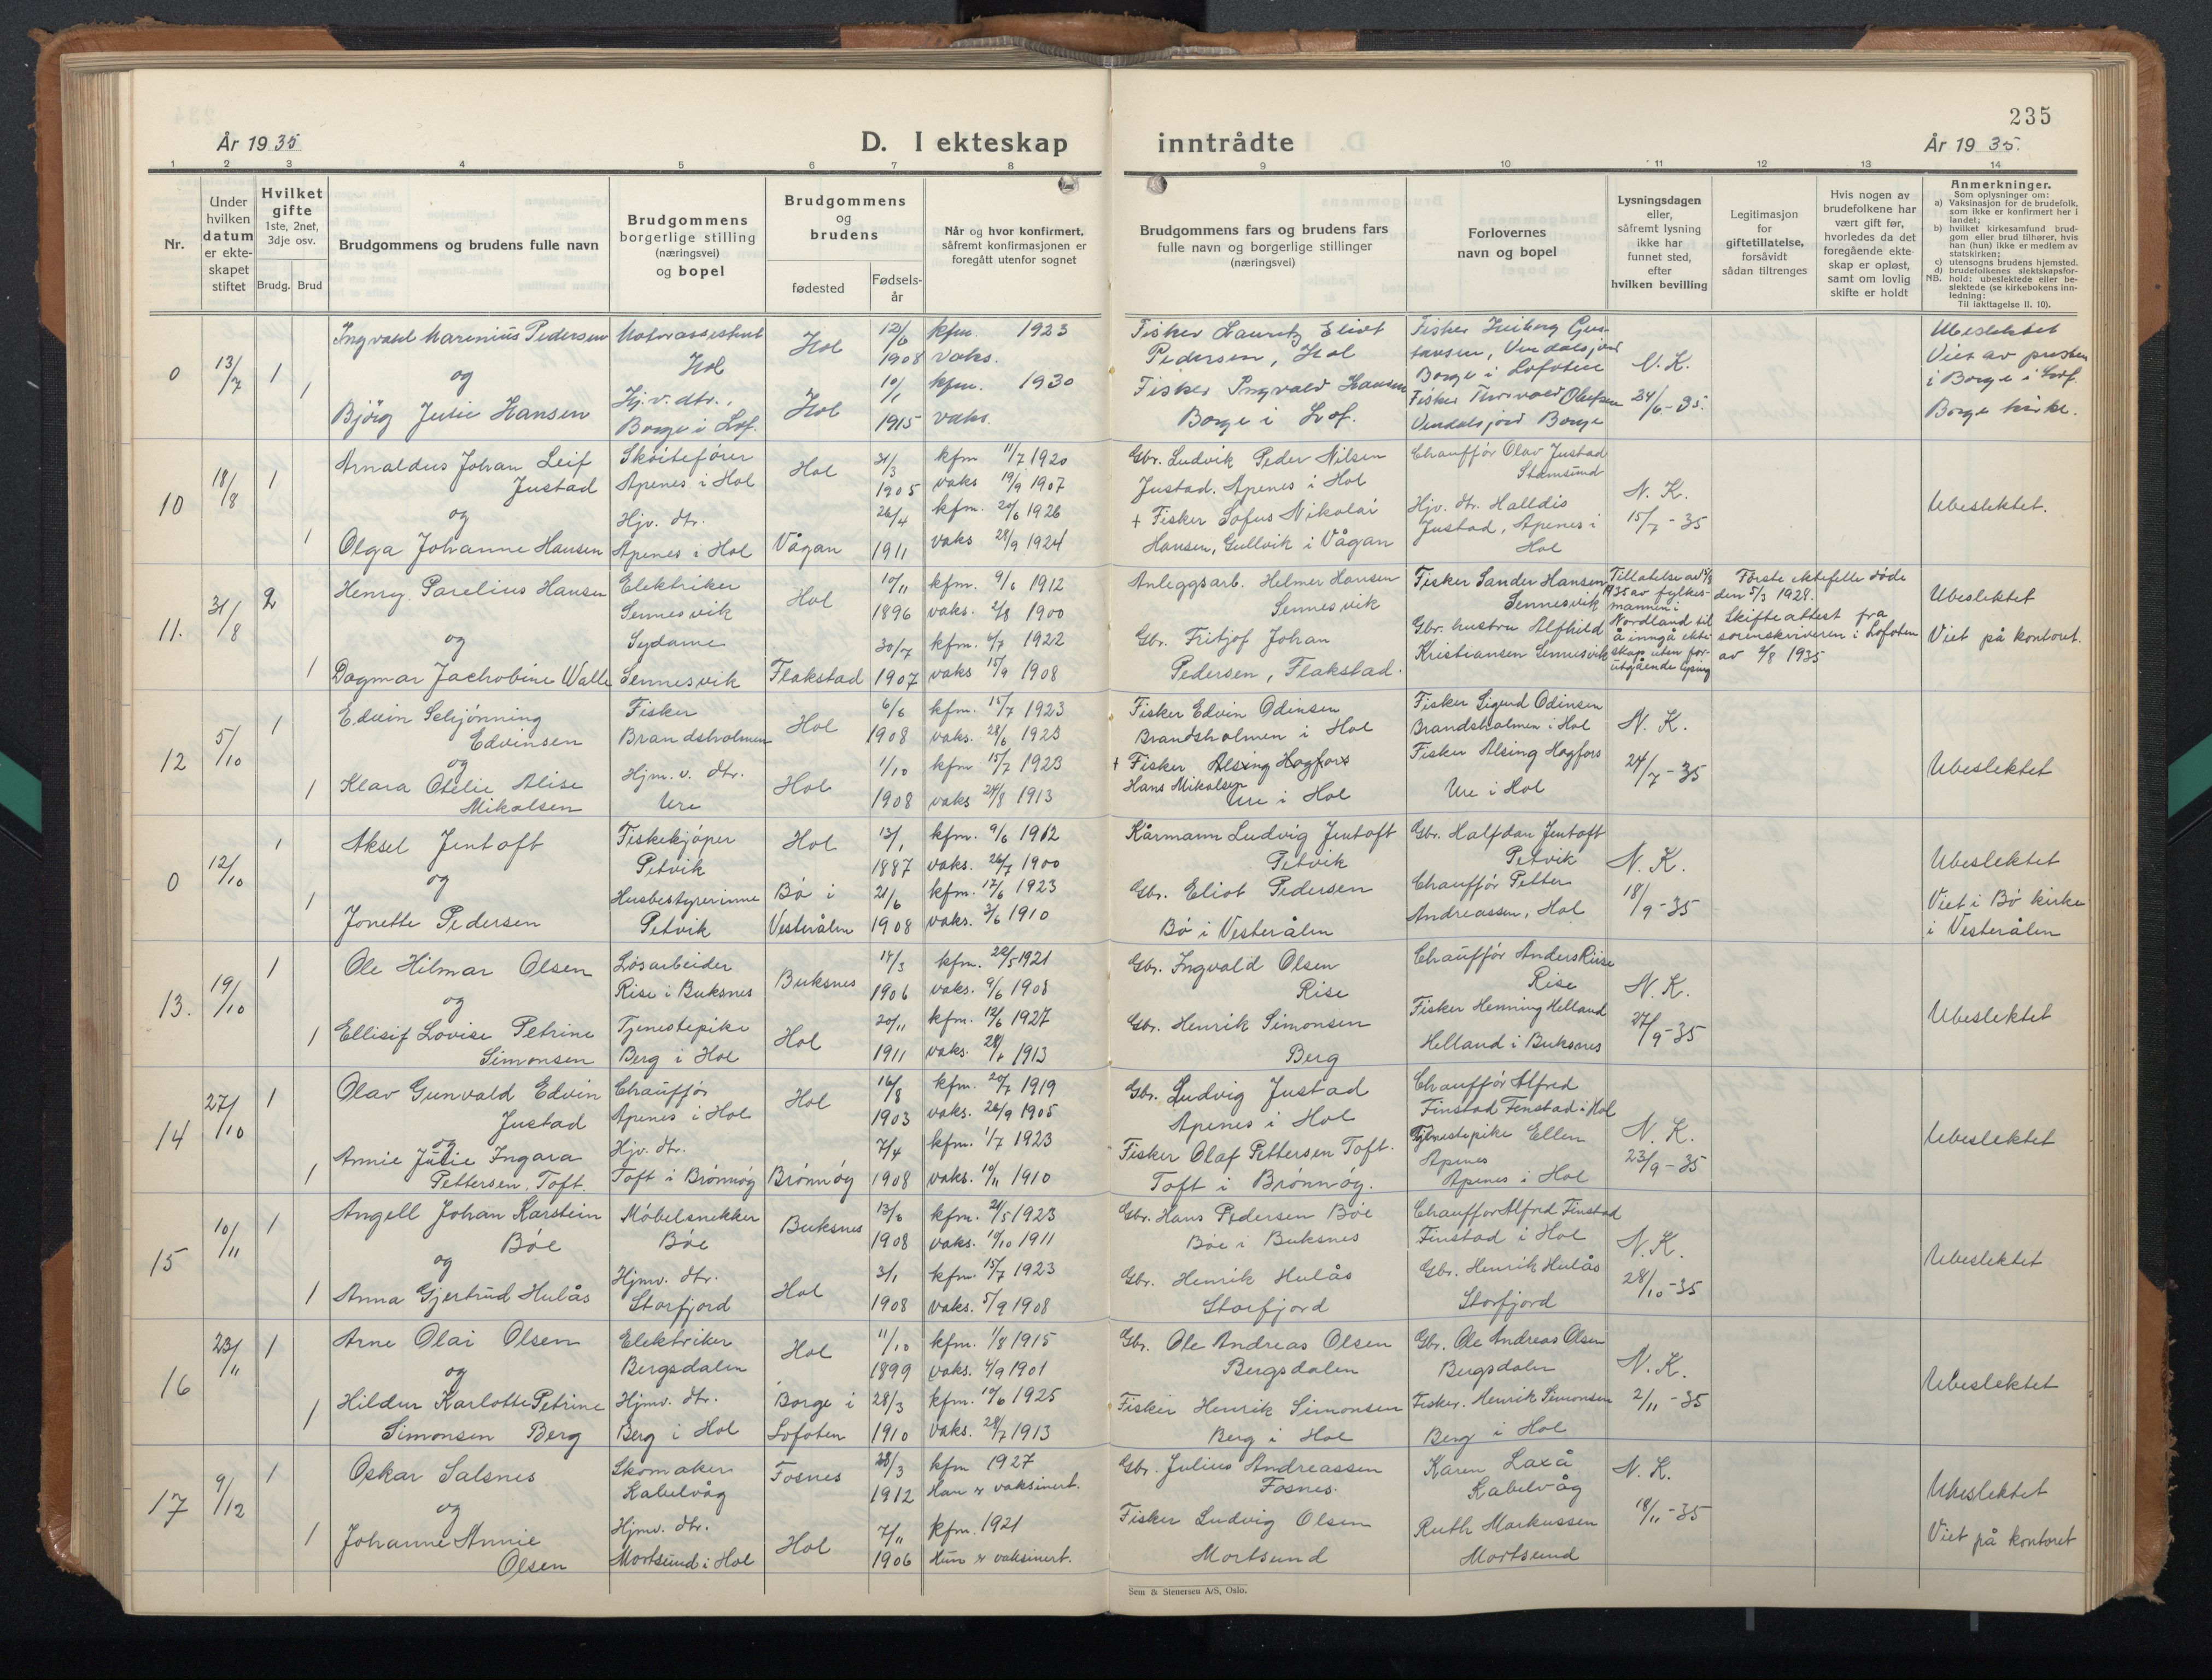 235
År 1935
D. I ekteskap inntrådte
År 1935.
1 2 3 4 5 6 7 8 9 10 11 12 13 14
Nr.
Under hvilken datum er ekte-skapet stiftet
Hvilket gifte 1ste, 2net, 3dje osv.
Brudg. Brud
Brudgommens og brudens fulle navn
Brudgommens borgerlige stilling (næringsvei) og bopel
Brudgommens og brudens
fødested
Fødsels-år
Når og hvor konfirmert, såfremt konfirmasjonen er foregått utenfor sognet
Brudgommens fars og brudens fars fulle navn og borgerlige stillinger (næringsvei)
Forlovernes navn og bopel
Lysningsdagen eller, såfremt lysning ikke har funnet sted, efter hvilken bevilling
Legitimasjon for giftetillatelse, forsåvidt sådan tiltrenges
Hvis nogen av brudefolkene har vært gift før, hvorledes da det foregående ekte-skap er opløst, samt om lovlig skifte er holdt
Anmerkninger.
Som oplysninger om:
a) Vaksinasjon for de brudefolk, som ikke er konfirmert her i landet;
b) hvilket kirkesamfund brud-gom eller brud tilhører, hvis han (hun) ikke er medlem av statskirken;
c) utensogns brudens hjemsted.
d) brudefolkenes slektskapsfor-hold: ubeslektede eller be-slektede (se kirkebokens inn-ledning:
NB. Til iakttagelse II. 10).
0 13/7 1 Ingvald Marenius Pedersen Motorassistent Hol Hol 12/6 1908 kfm. 1923 vaks.
Fisker Lauritz Eliot Pedersen, Hol
og
1 Bjørg Julie Hansen Hj.v. dtr., Borge i Lof. Hol 10/1 1915 kfm. 1930 vaks.
Fisker Ingvald Hansen Borge i Lof.
Borge i Lofoten
Fisker Thorvald Olufsen Borge
N.K. 24/6-35.
Ubeslektet
Viet av presten i Borge i Lof. Borge kirke.
10 18/8 1 Arnaldus Johan Leif Justad Skøitefører Apenes i Hol Hol 31/3 1905 kfm 11/7 1920 vaks 19/9 1907
Gbr. Ludvik Peder Nilsen Justad. Apenes i Hol
Chauffør Olav Justad Stamsund
og
1 Olga Johanne Hansen Hjv. dtr. Apenes i Hol Vågan 26/4 1911 kfm. 20/6 1926 vaks 28/9 1924
+ Fisker Sofus Nikolai Hansen, Gullvik i Vågan
Hjv. dtr. Halldis Justad, Apenes i Hol
N.K. 15/7-35
Ubeslektet.
11. 31/8 2 Henry Parelius Hansen Elektriker Sennesvik Hol 10/11 1896 kfm. 9/6 1912 vaks. 2/8 1900
Anleggsarb. Helmer Hansen Sennesvik
Fisker Sander Hansen Sennesvik
og
1 Dagmar Jachobine Walle Sydame Sennesvik Flakstad 30/7 1907 kfm. 6/7 1922 vaks 15/9 1908
Gbr. Fritjof Johan Pedersen, Flakstad.
Gbr. hustru Alfhild Kristiansen Sennesvik
Tillatelse av 5/8 1935 av fylkes-mannen i Nordland til å inngå ekte-skap uten for-utgående lysing
Første ektefelle døde den 5/3 1928.
Skifteattest fra sorenskriveren i Lofoten av 2/8 1935
Ubeslektet
Viet på kontoret.
12 5/10 1 Edvin Schjønning Edvinsen Fisker Brandsholmen Hol 6/6 1908 kfm. 15/7 1923 vaks. 28/6 1923
Fisker Edvin Odinsen Brandsholmen i Hol
Fisker Sigurd Odinsen Brandsholmen i Hol
og
1 Klara Otelie Alise Mikalsen Hjm. v. dtr. Ure Hol 1/10 1908 kfm 15/7 1923 vaks 24/8 1913
+ Fisker Alsing Hagfors Hans Mikalsen Ure i Hol
Fisker Alsing Hagfors Ure i Hol
N.K. 24/7-35
Ubeslektet
0 12/10 1 Aksel Jentoft Fiskekjøper Petvik Hol 13/1 1887 kfm. 9/6 1912 vaks. 26/7 1900
Kårmann Ludvig Jentoft Petvik
Gbr. Halfdan Jentoft Petvik
og
1 Jonette Pedersen Husbestyrerinne Petvik Bø i Vesterålen 21/6 1908 kfm. 17/6 1923 vaks. 3/6 1910
Gbr. Eliot Pedersen Bø i Vesterålen
Chauffør Petter Andreassen, Hol
N.K. 18/9-35
Ubeslektet
Viet i Bø kirke i Vesterålen
13. 19/10 1 Ole Hilmar Olsen Løsarbeider Rise i Buksnes Buksnes 14/3 1906 kfm. 22/5 1921 vaks. 9/6 1908
Gbr. Ingvald Olsen Rise
Chauffør Anders Riise Rise
og
1 Ellisif Lovise Petrine Simonsen Tjenestepike Berg i Hol Hol 20/11 1911 kfm. 12/6 1927 vaks. 28/7 1913
Gbr. Henrik Simonsen Berg
Fisker Henning Helland Helland i Buksnes
N.K. 27/9-35
Ubeslektet
14 27/10 1 Olav Gunvald Edvin Justad Chauffør Apenes i Hol Hol 16/8 1903 kfm. 20/7 1919 vaks. 26/9 1905
Gbr. Ludvig Justad Apenes i Hol
Chauffør Alfred Finstad Finstad i Hol
og
1 Annie Julie Ingara Pettersen Toft. Hjv. dtr. Toft i Brønnøy Brønnøy 7/4 1908 kfm. 1/7 1923 vaks. 10/11 1910
Fisker Olaf Pettersen Toft. Toft i Brønnøy.
Tjenestepike Ellen Apenes Apenes i Hol
N.K. 23/9-35
Ubeslektet
15 10/11 1 Angell Johan Karstein Bøe Møbelsnekker Bøe Buksnes 13/6 1908 kfm. 21/5 1923 vaks. 10/10 1911
Gbr. Hans Pedersen Bøe Bøe i Buksnes
Chauffør Alfred Finstad Finstad i Hol
og
1 Anna Gjertrud Hulås Hjmv. dtr. Storfjord Hol 3/1 1908 kfm. 15/7 1923 vaks. 5/9 1908
Gbr. Henrik Hulås Storfjord
Gbr. Henrik Hulås Storfjord
N.K. 28/10-35
Ubeslektet
16 23/11 1 Arne Olai Olsen Elektriker Bergsdalen Hol 11/10 1899 kfm. 1/8 1915 vaks. 4/9 1901
Gbr. Ole Andreas Olsen Bergsdalen
Gbr. Ole Andreas Olsen Bergsdalen
og
1 Hildur Karlotte Petrine Simonsen Berg Hjmv. dtr. Berg i Hol Borge i Lofoten 28/3 1910 kfm. 10/6 1925 vaks. 28/7 1913
Fisker Henrik Simonsen Berg i Hol
Fisker. Henrik Simonsen Berg i Hol
N.K. 2/11-35
Ubeslektet
17 9/12 1 Oskar Salsnes Skomaker Kabelvåg Fosnes 28/3 1912 kfm 1927 Han er vaksinert.
Gbr. Julius Andreassen Fosnes.
Karen Laxå Kabelvåg
og
1 Johanne Annie Olsen Hjmv. dtr. Mortsund i Hol Hol 7/11 1906 kfm. 1921 Hun er vaksinert.
Fisker Ludvig Olsen Mortsund
Ruth Markussen Mortsund
N.K. 18/11-35
Ubeslektet
Viet på kontoret
Sem & Stenersen A/S, Oslo.